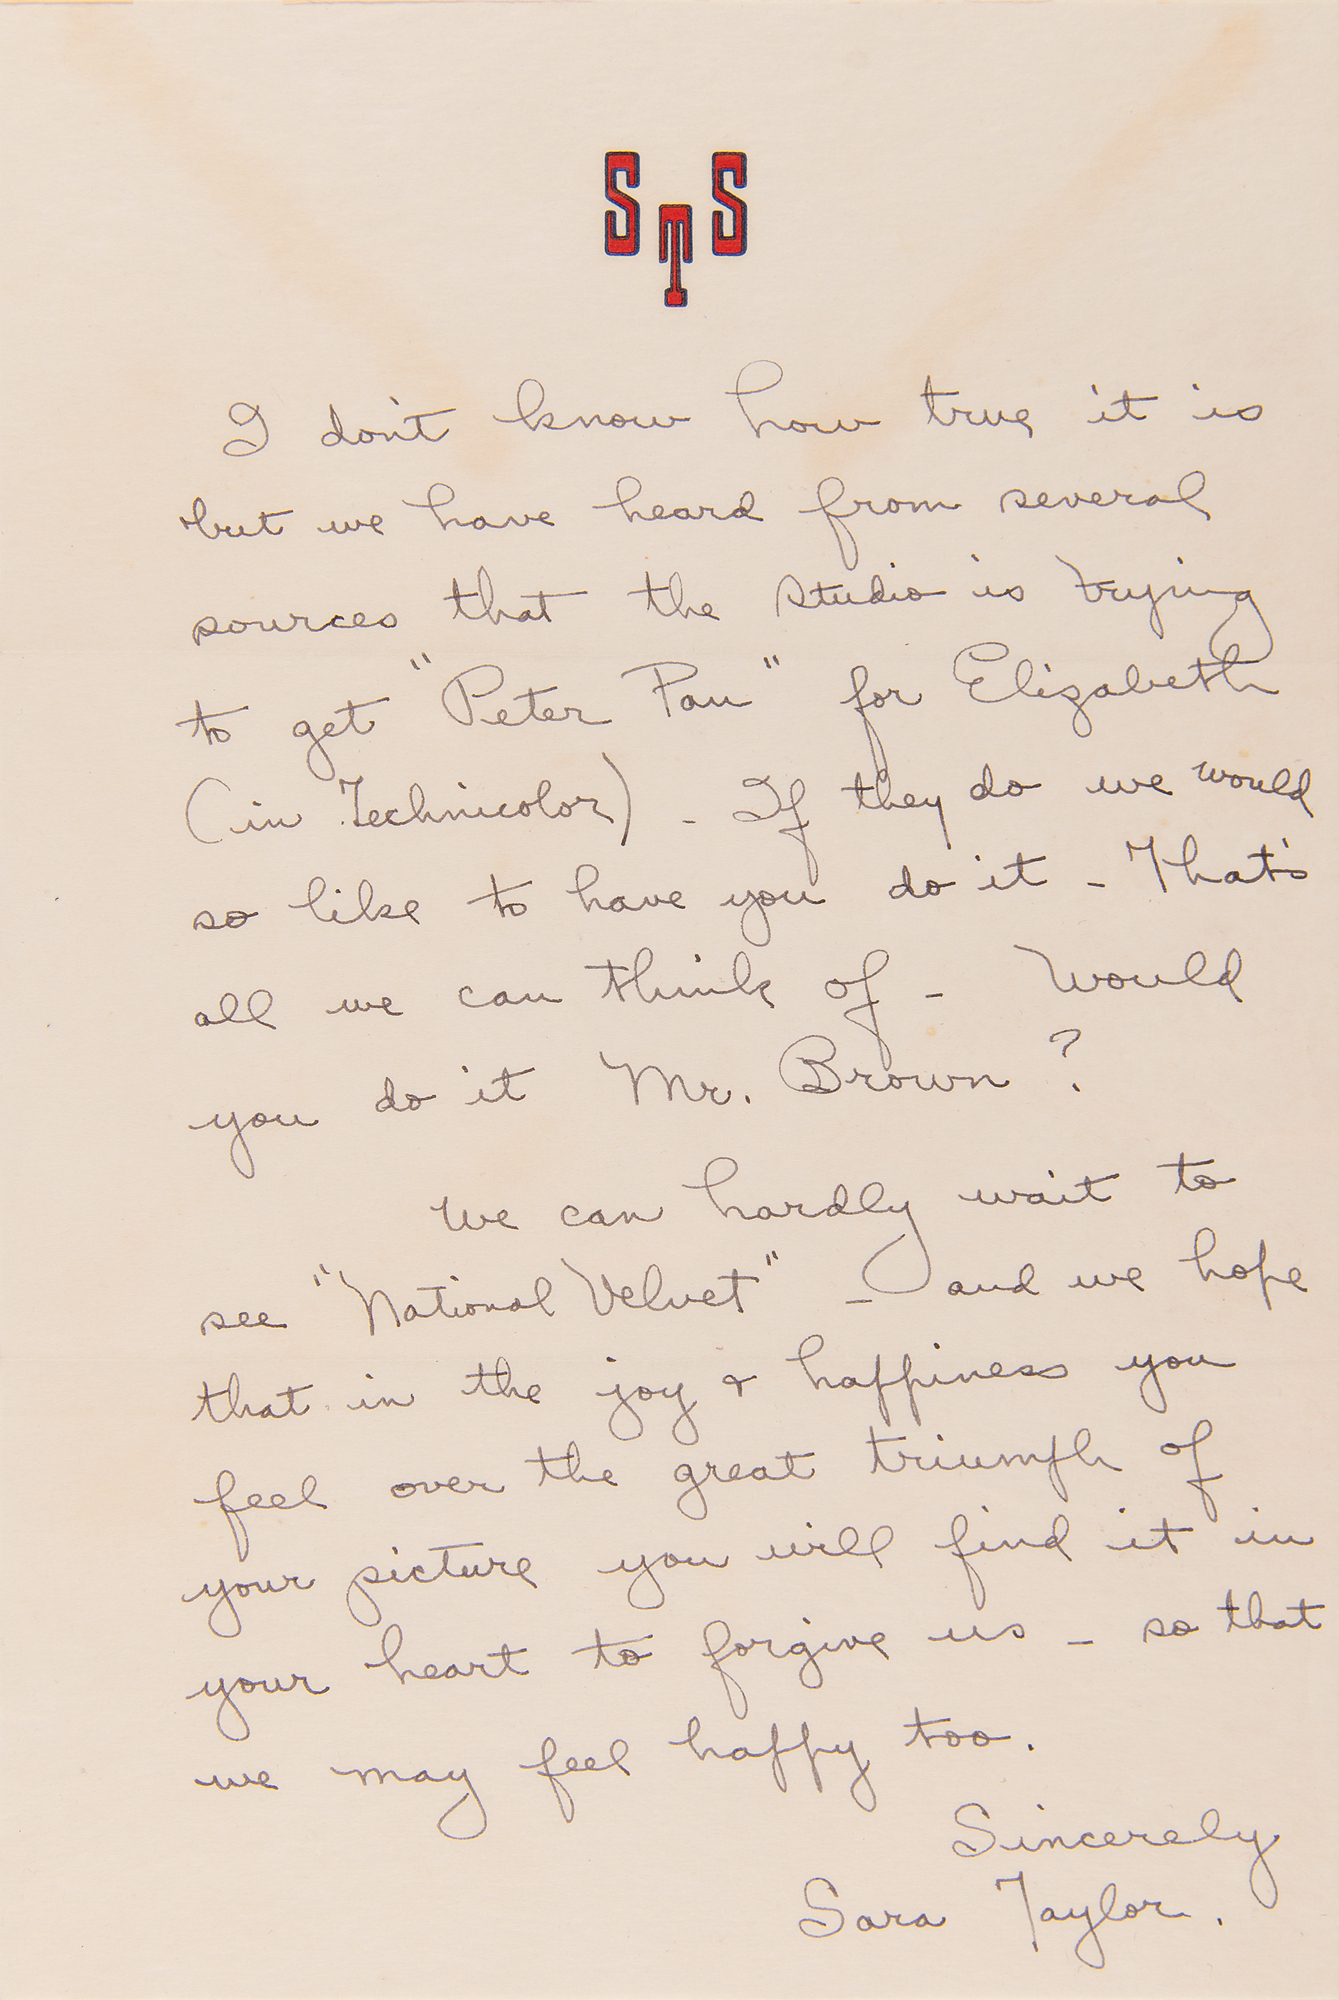 STS
I don't know how true it is
but we have heard from several
sources that the studio is trying
to get "Peter Pan" for Elizabeth
(in Technicolor) - If they do we would
so like to have you do it - That's
all we can think of - Would
you do it Mr. Brown?
We can hardly wait to
see "National Velvet" - and we hope
that in the joy & happiness you
feel over the great triumph of
your picture you will find it in
your heart to forgive us - so that
we may feel happy too.
Sincerely
Sara Taylor.